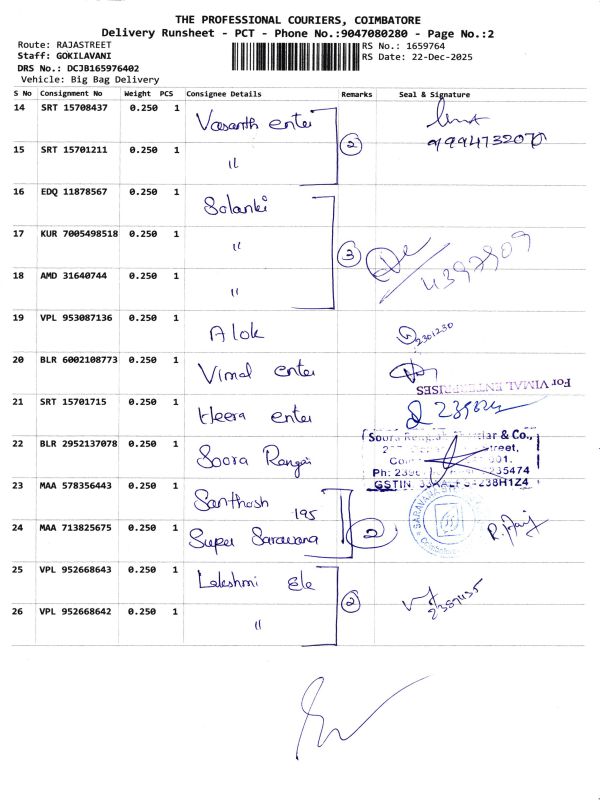 THE PROFESSIONAL COURIERS, COIMBATORE
Delivery Runsheet - PCT - Phone No.:9047080280 - Page No.:2
Route: RAJASTREET
RS No.: 1659764
Staff: GOKILAVANI
RS Date: 22-Dec-2025
DRS No.: DCJB165976402
Vehicle: Big Bag Delivery
S No Consignment No Weight PCS Consignee Details Remarks Seal & Signature
14 SRT 15708437 0.250 1 Vasanth enter
9994732070
15 SRT 15701211 0.250 1 " 2
16 EDQ 11878567 0.250 1 Solanki
17 KUR 7005498518 0.250 1 " 3
4397909
18 AMD 31640744 0.250 1 "
19 VPL 953087136 0.250 1 Alok 2301230
20 BLR 6002108773 0.250 1 Vimal enter
For VIMAL ENTERPRISES
21 SRT 15701715 0.250 1 Heera enter
22 BLR 2952137078 0.250 1 Soora Rengai
Soora & Co.,
Ph: 235474
GSTIN
23 MAA 578356443 0.250 1 Santhosh 195
24 MAA 713825675 0.250 1 Super Saravana 2
25 VPL 952668643 0.250 1 Lakshmi Ele
26 VPL 952668642 0.250 1 " 2